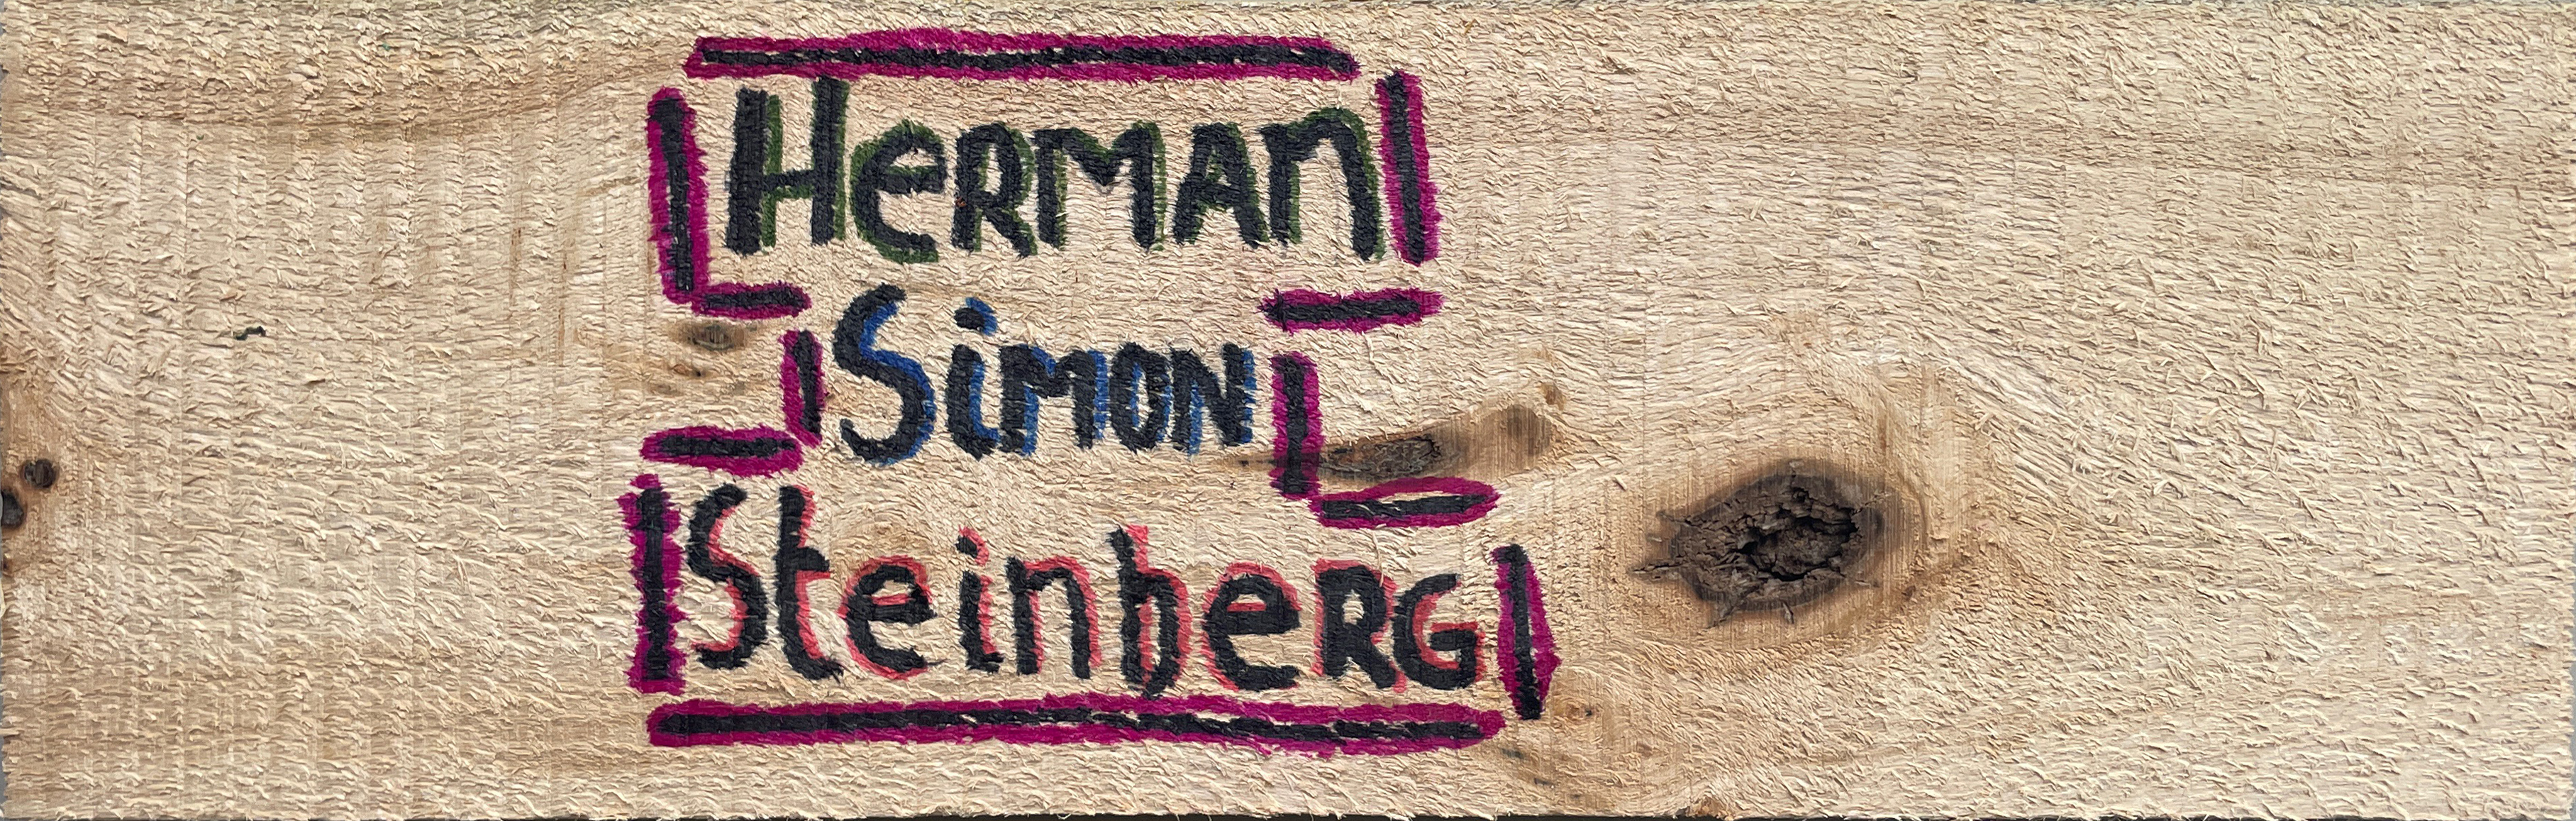 Herman
Simon
Steinberg